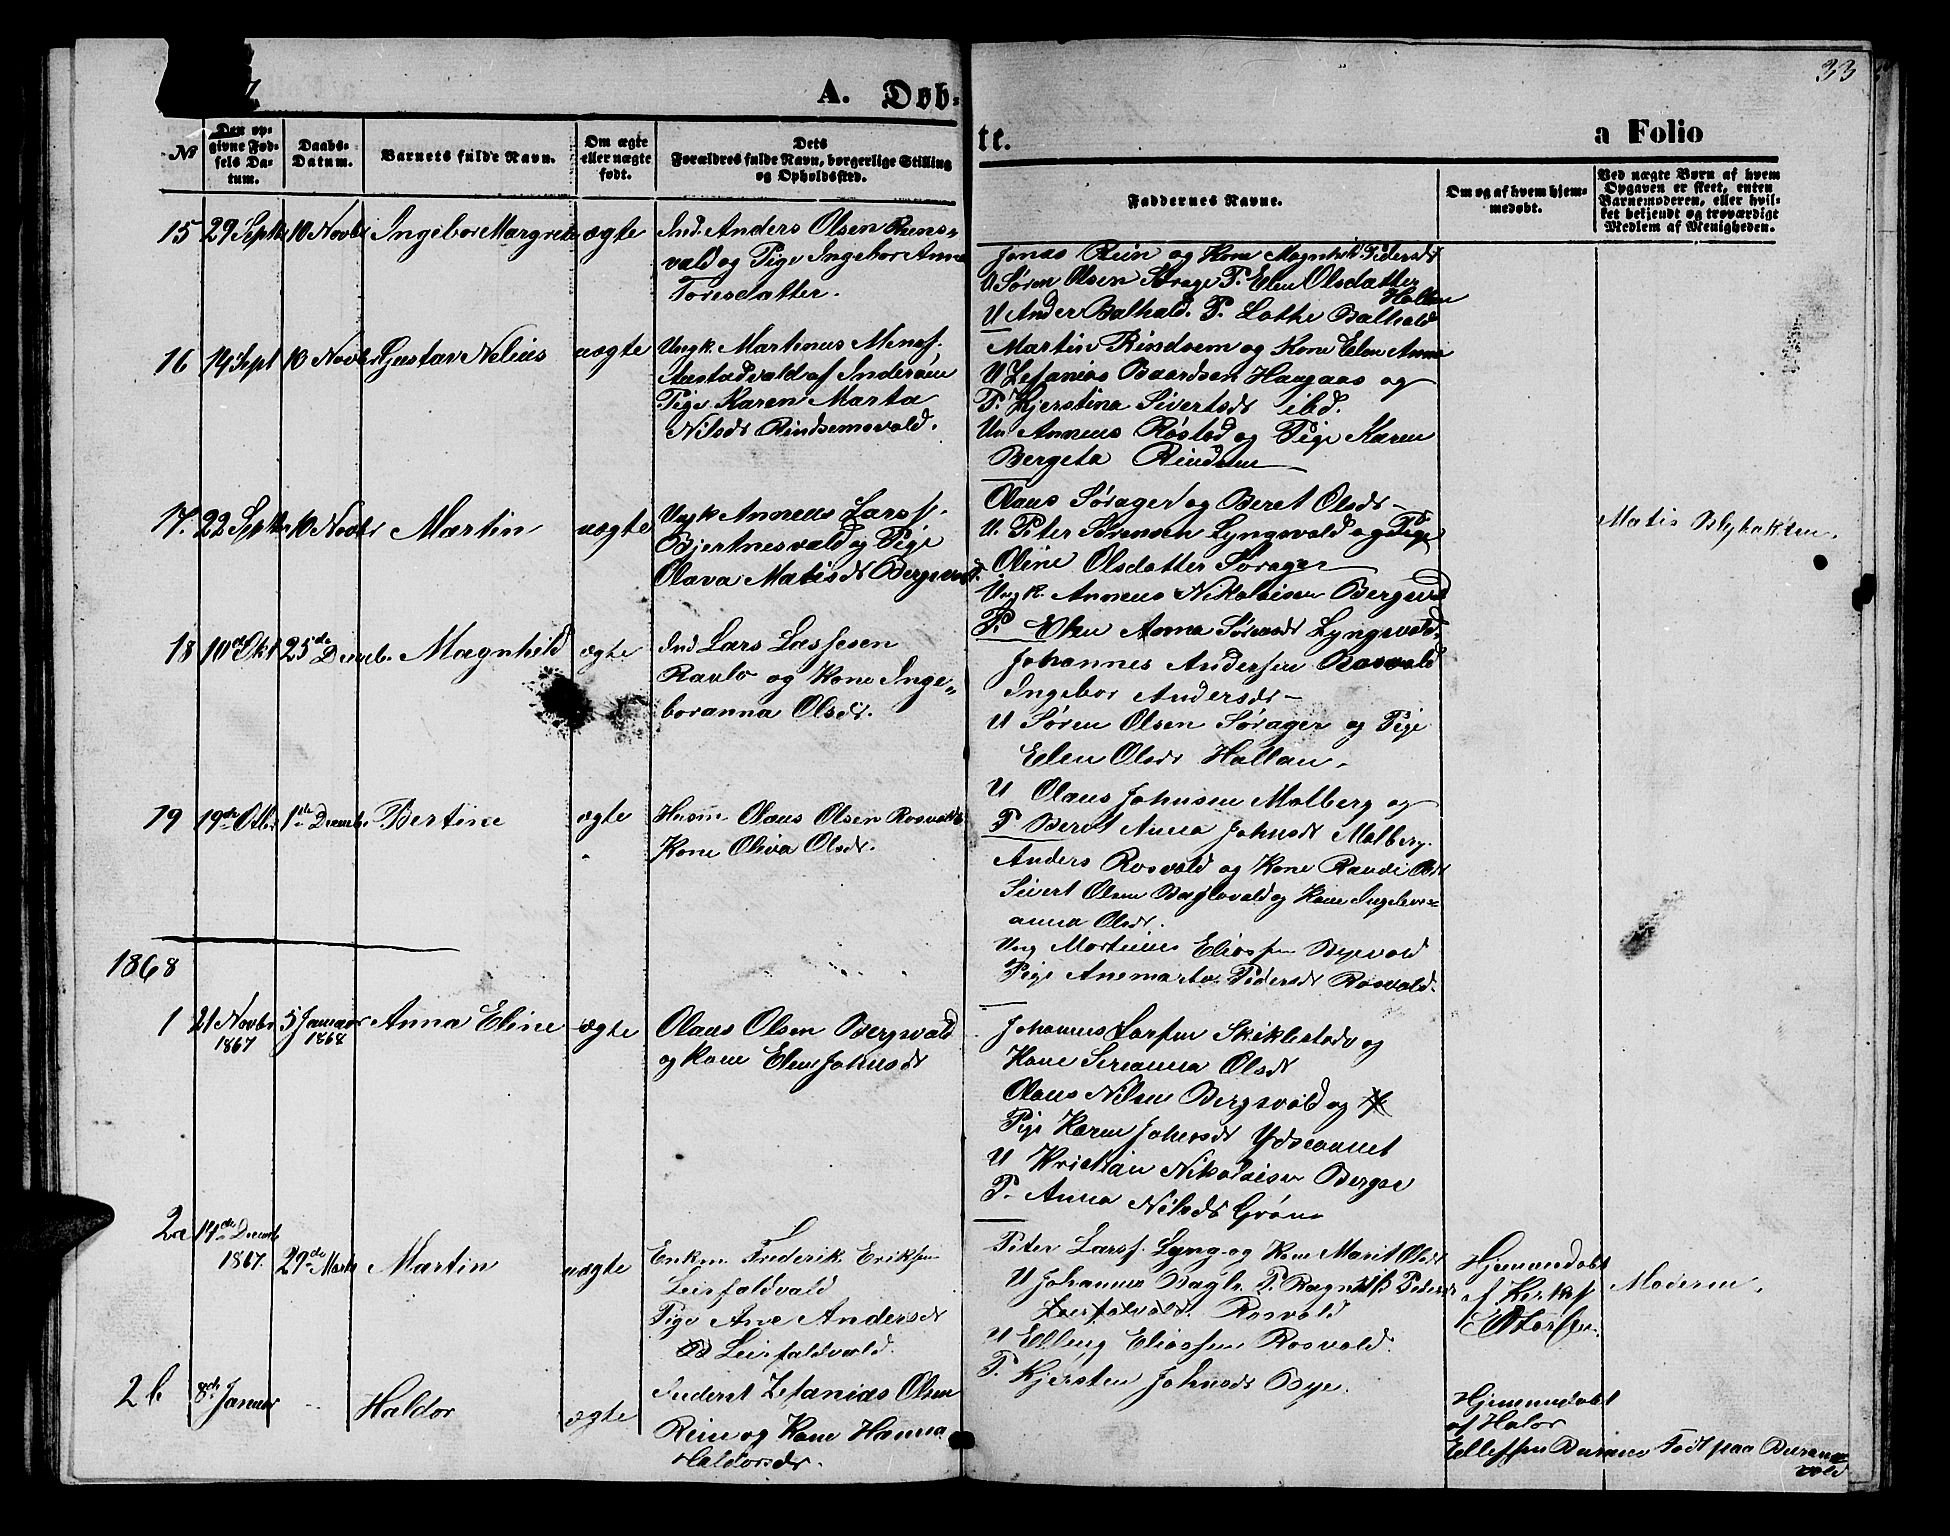 33
A. Døb-
te.
a Folio
No
Den op-
givne Fød-
sels Da-
tum.
Daabs-
Datum.
Barnets fulde Navn.
Om ægte
eller uægte
født.
Dets
Forældres fulde Navn, borgerlige Stilling
og Opholdssted.
Faddernes Navne.
Om og af hvem hjem-
medøbt.
Ved uægte Børn af hvem
Opgaven er skeet, enten
Barnemoderen, eller hvil-
ket bekjendt og troværdigt
Medlem af Menigheden.
15 29 Septbr 10 Novbr Ingebor Margrete ægte
Ind. Anders Olsen Rens-
vald og Pige Ingebor Anna
Toresdatter.
Jonas Rein og Kone Magnhild Pedersdt
U Søren Olsen Sørager P. Elen Olsdatter
Hallan
U Ander Balhald. P. Lothe Balhald
16 14 Sept 10 Novbr Gustav Nelius uægte
Ungk. Martinus Monsf.
Austadvald af Inderøen
Pige Karen Marta
Nilsdt Rindsemsvald.
Martin Rindsem og Kone Elen Anna
U Zefanias Baardsen Haugaas og
P. Kjerstina Sivertsdt ibd.
Un Anneus Røstad og Pige Karen
Bergeta Rindsem
17. 22 Septbr 10 Novbr Martin uægte
Ungk Anneus Larsf.
Bjertnesvald og Pige
Olava Matisdt Bergsvd.
Olaus Sørager og Beret Olsdt
U. Peter Sørensen Lyngsvald og Pige
Oline Olsdatter Sørager
Ungk. Anneus Nikolaisen Bergsvd
P. Elen Anna Sørensdt Lyngsvald.
Matis Blybakken.
18 10de Okt 25de Decemb. Magnhild ægte
Ind Lars Lassesen
Ravlo og Kone Inge-
boranna Olsdt.
Johannes Andersen Rosvald
Ingebor Andersdt
U Søren Olsen Sørager og Pige
Elen Olsdt Hallan.
U Olaus Johnsen Molberg og
P Beret Anna Johnsdt Molberg.
19 19de Otbr 1ste Decembr Bertine ægte
Husm Olaus Olsen Rosvald
Kone Oliva Olsdt.
Anders Rosvald og Kone Randi Olsdt
Sivert Olsen Baglovald og Kone Ingebor-
anna Olsdt.
Ung Martinus Eliassen Byevald
Pige Anemarta Pedersdt Rosvald.
1868
1 21 Novbr 5 Januar Anna Eline ægte
1867 1868
Olaus Olsen Bergsvald
og Kone Elen Johnsdt
Johannes Larsen Skiklestad og
Kone Serianna Olsdt
Olaus Nilsen Bergsvald og
Pige Karen Johnsdt
U Kristian Nikolaisen Bergsv
P. Anna Nilsdt Grøn
2a 14de Decemb
1867. 29de Marts Martin uægte
Enkm. Frederik Eriksen
Leirfaldvald
Pige Ane Andersdt
Leirfaldvald.
Peter Larsf. Lyng og Kone Marit Olsdt
U Johannes Bagl. P. Ragnhild Pedersdt
Leirfaldvald. Rosvald
U Elling Eliassen Rosvald.
P. Kjersten Johnsdt Bye.
Hjemmedøbt
af Kirks.
E Størsen.
Moderen.
2b 8de Januar Haldor ægte
Inderst Zefanias Olsen
Rein og Kone Hanna
Haldorsdt.
Hjemmedøbt
af Halor
Ellefsen Buran Født paa Buran
vald